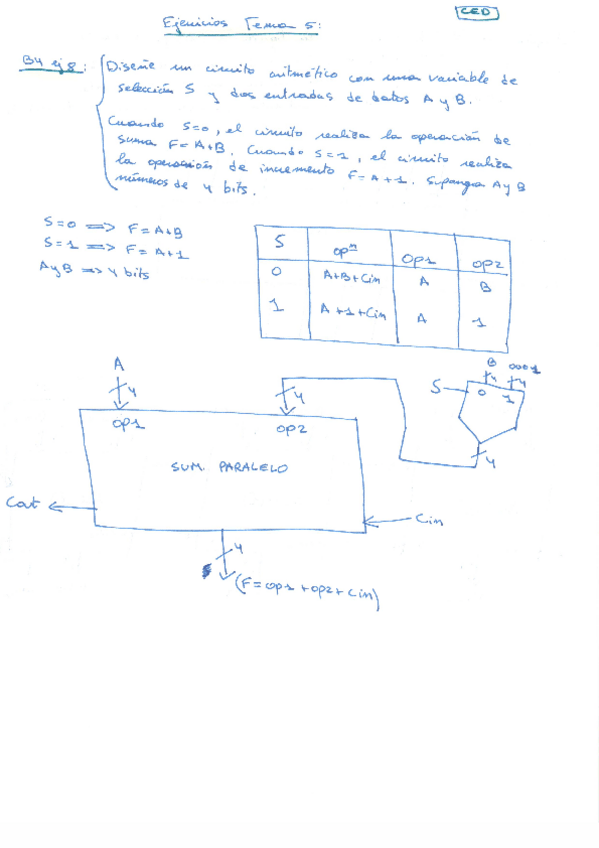 CED
Ejercicios Tema 5:
B4 ej 8: Diseñe un circuito aritmético con una variable de
selección S y dos entradas de datos A y B.
Cuando S=0, el circuito realiza la operación de
suma F=A+B. Cuando S=1, el circuito realiza
la operación de incremento F=A+1. Suponga A y B
números de 4 bits.
S=0 => F=A+B
S=1 => F=A+1
A y B => 4 bits
S opⁿ op1 op2
0 A+B+Cin A B
1 A+1+Cin A 1
A
4
4
B 0001
4 4
S
0 1
4
op1 op2
SUM. PARALELO
Cout
Cin
4
(F=op1+op2+Cin)